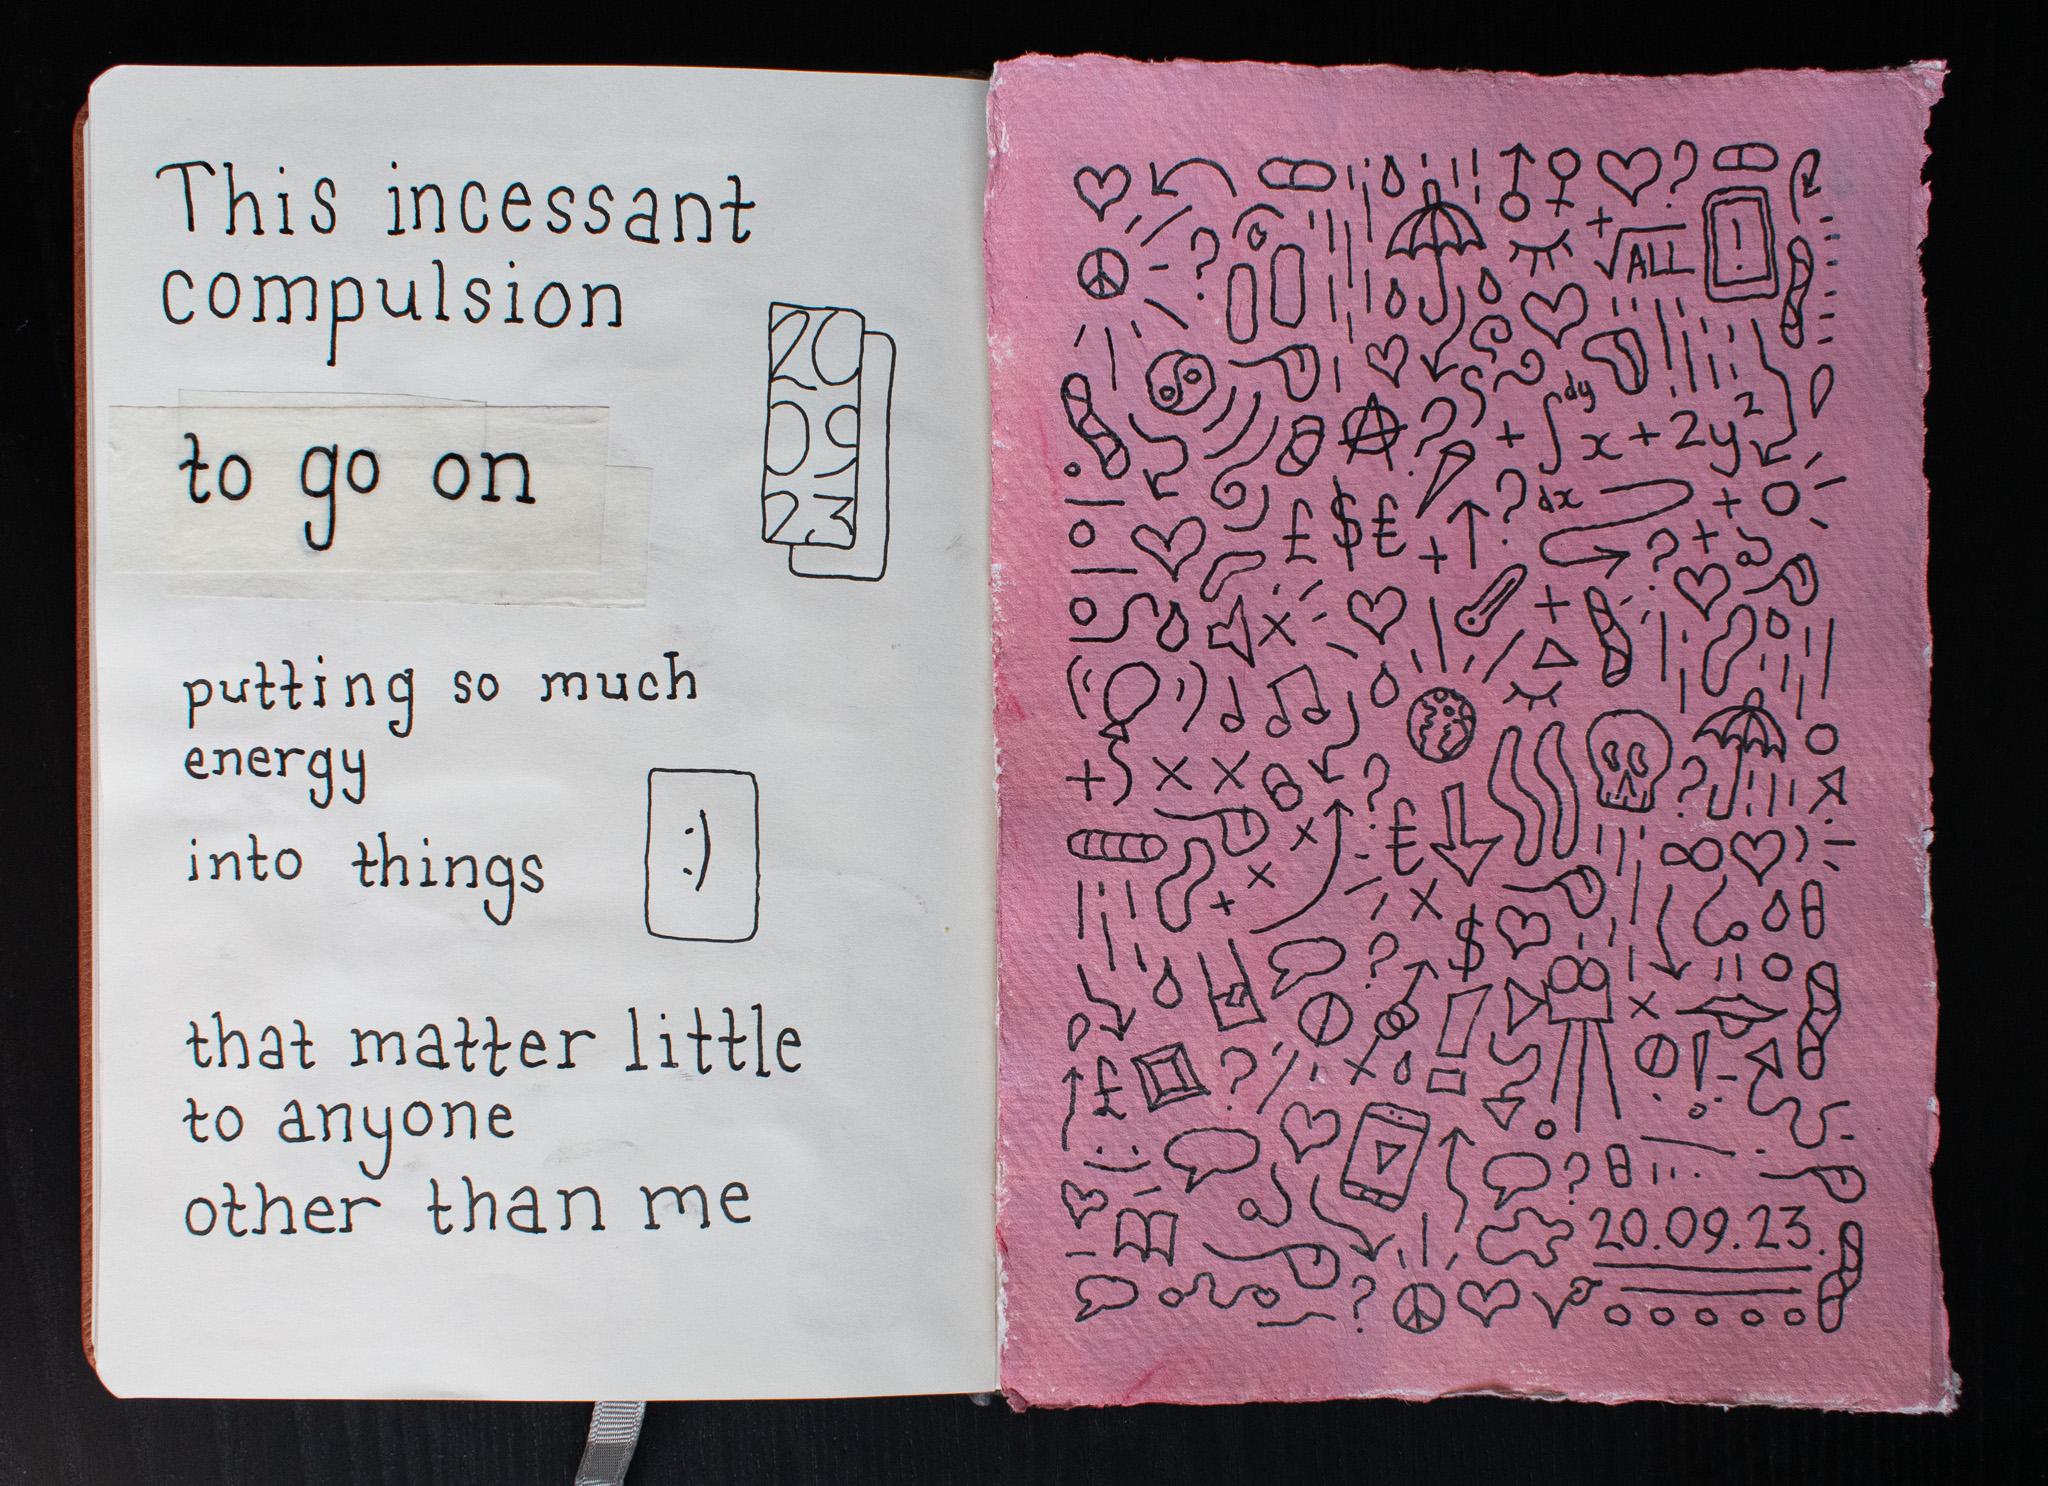 This incessant
compulsion
20
09
23
to go on
putting so much
energy
into things
:)
that matter little
to anyone
other than me
? 
!
?
+ √ALL
? + ∫ dy x + 2y²
dx
£ $ € + ?
?
?
?
£
$
?
£ ?
!
?
20.09.23.
?